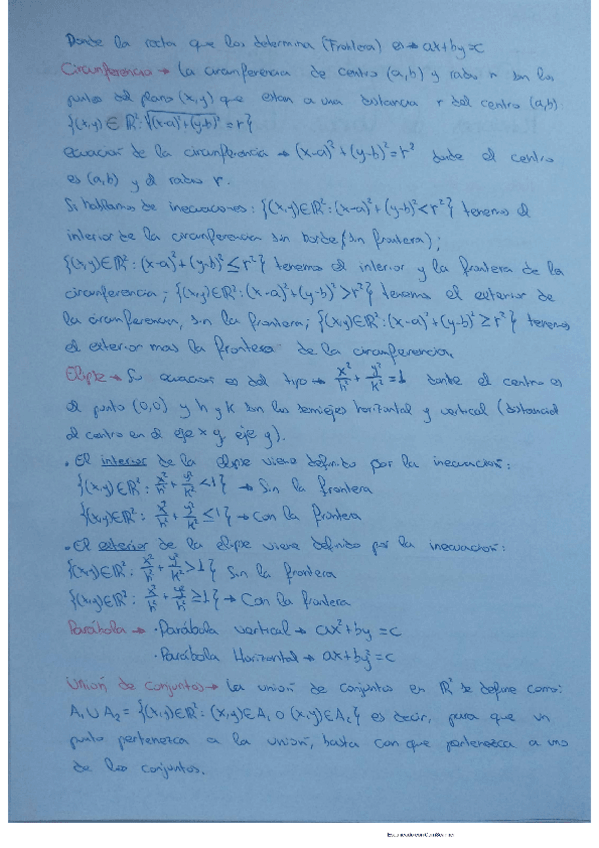 Donde la recta que los determina (Frontera) es → ax+by=c
Circunferencia → La circunferencia de centro (a,b) y radio r son los
puntos del plano (x,y) que estan a una distancia r del centro (a,b)
{(x,y) ∈ ℝ²: √(x-a)²+(y-b)² = r}
ecuación de la circunferencia → (x-a)²+(y-b)²=r² donde el centro
es (a,b) y el radio r.
Si hablamos de inecuaciones: {(x,y)∈ℝ²: (x-a)²+(y-b)²<r²} tenemos el
interior de la circunferencia sin borde (sin frontera);
{(x,y)∈ℝ²: (x-a)²+(y-b)² ≤ r²} tenemos el interior y la frontera de la
circunferencia; {(x,y)∈ℝ²: (x-a)²+(y-b)² >r²} tenemos el exterior de
la circunferencia, sin la frontera; {(x,y)∈ℝ²: (x-a)²+(y-b)² ≥ r²} tenemos
el exterior mas la frontera de la circunferencia.
Elipse → Su ecuación es del tipo → x²/h² + y²/k² = 1 donde el centro es
el punto (0,0) y h y k son los semiejes horizontal y vertical (distancia
al centro en el eje x y eje y).
• El interior de la elipse viene definido por la inecuación:
{(x,y)∈ℝ²: x²/h² + y²/k² <1} → Sin la frontera
{(x,y)∈ℝ²: x²/h² + y²/k² ≤1} → Con la frontera
• El exterior de la elipse viene definido por la inecuación:
{(x,y)∈ℝ²: x²/h² + y²/k² >1} Sin la frontera
{(x,y)∈ℝ²: x²/h² + y²/k² ≥1} → Con la frontera
Parábola → • Parábola vertical → ax²+by=c
• Parábola Horizontal → ax+by²=c
Unión de conjuntos → La unión de conjuntos en ℝ² se define como:
A₁ ∪ A₂ = {(x,y)∈ℝ²: (x,y)∈A₁ o (x,y)∈A₂} es decir, para que un
punto pertenezca a la unión, basta con que pertenezca a uno
de los conjuntos.
Escaneado con CamScanner